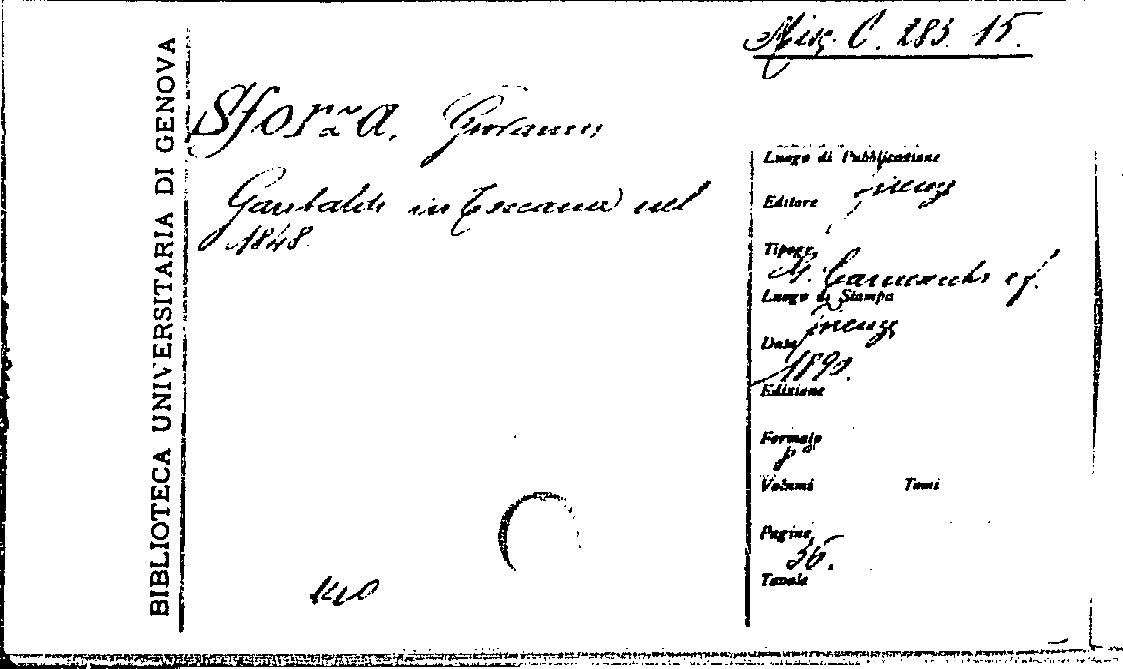 BIBLIOTECA UNIVERSITARIA DI GENOVA
Misc. C. 283. 15.
Sforza, Giovanni
Garibaldi in Toscana nel
1848.
Luogo di Pubblicazione
Firenze
Editore
Tipogr.
G. Carnesecchi e f.
Luogo di Stampa
Firenze
Data
Edizione
Formato
8°
Volumi Tomi
Pagine
36.
Tavole